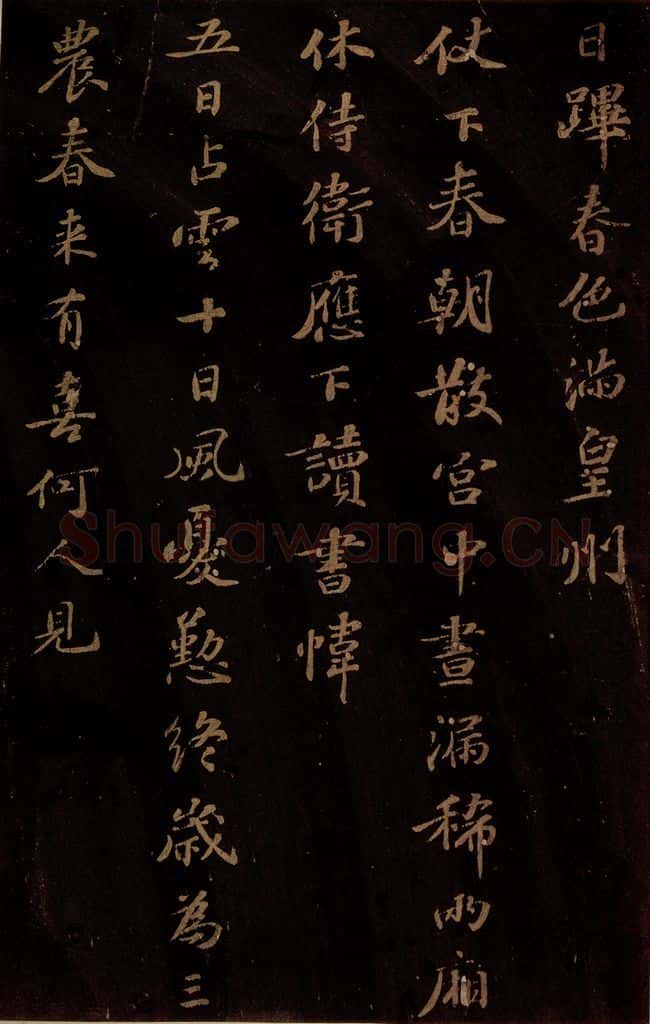 日蹕春色滿皇州
仗下春朝散宮中晝漏稀兩廂
休侍衛應下讀書幃
五日占雲十日風憂懃終歲為三
農春来有喜何人見
Shufawang.CN